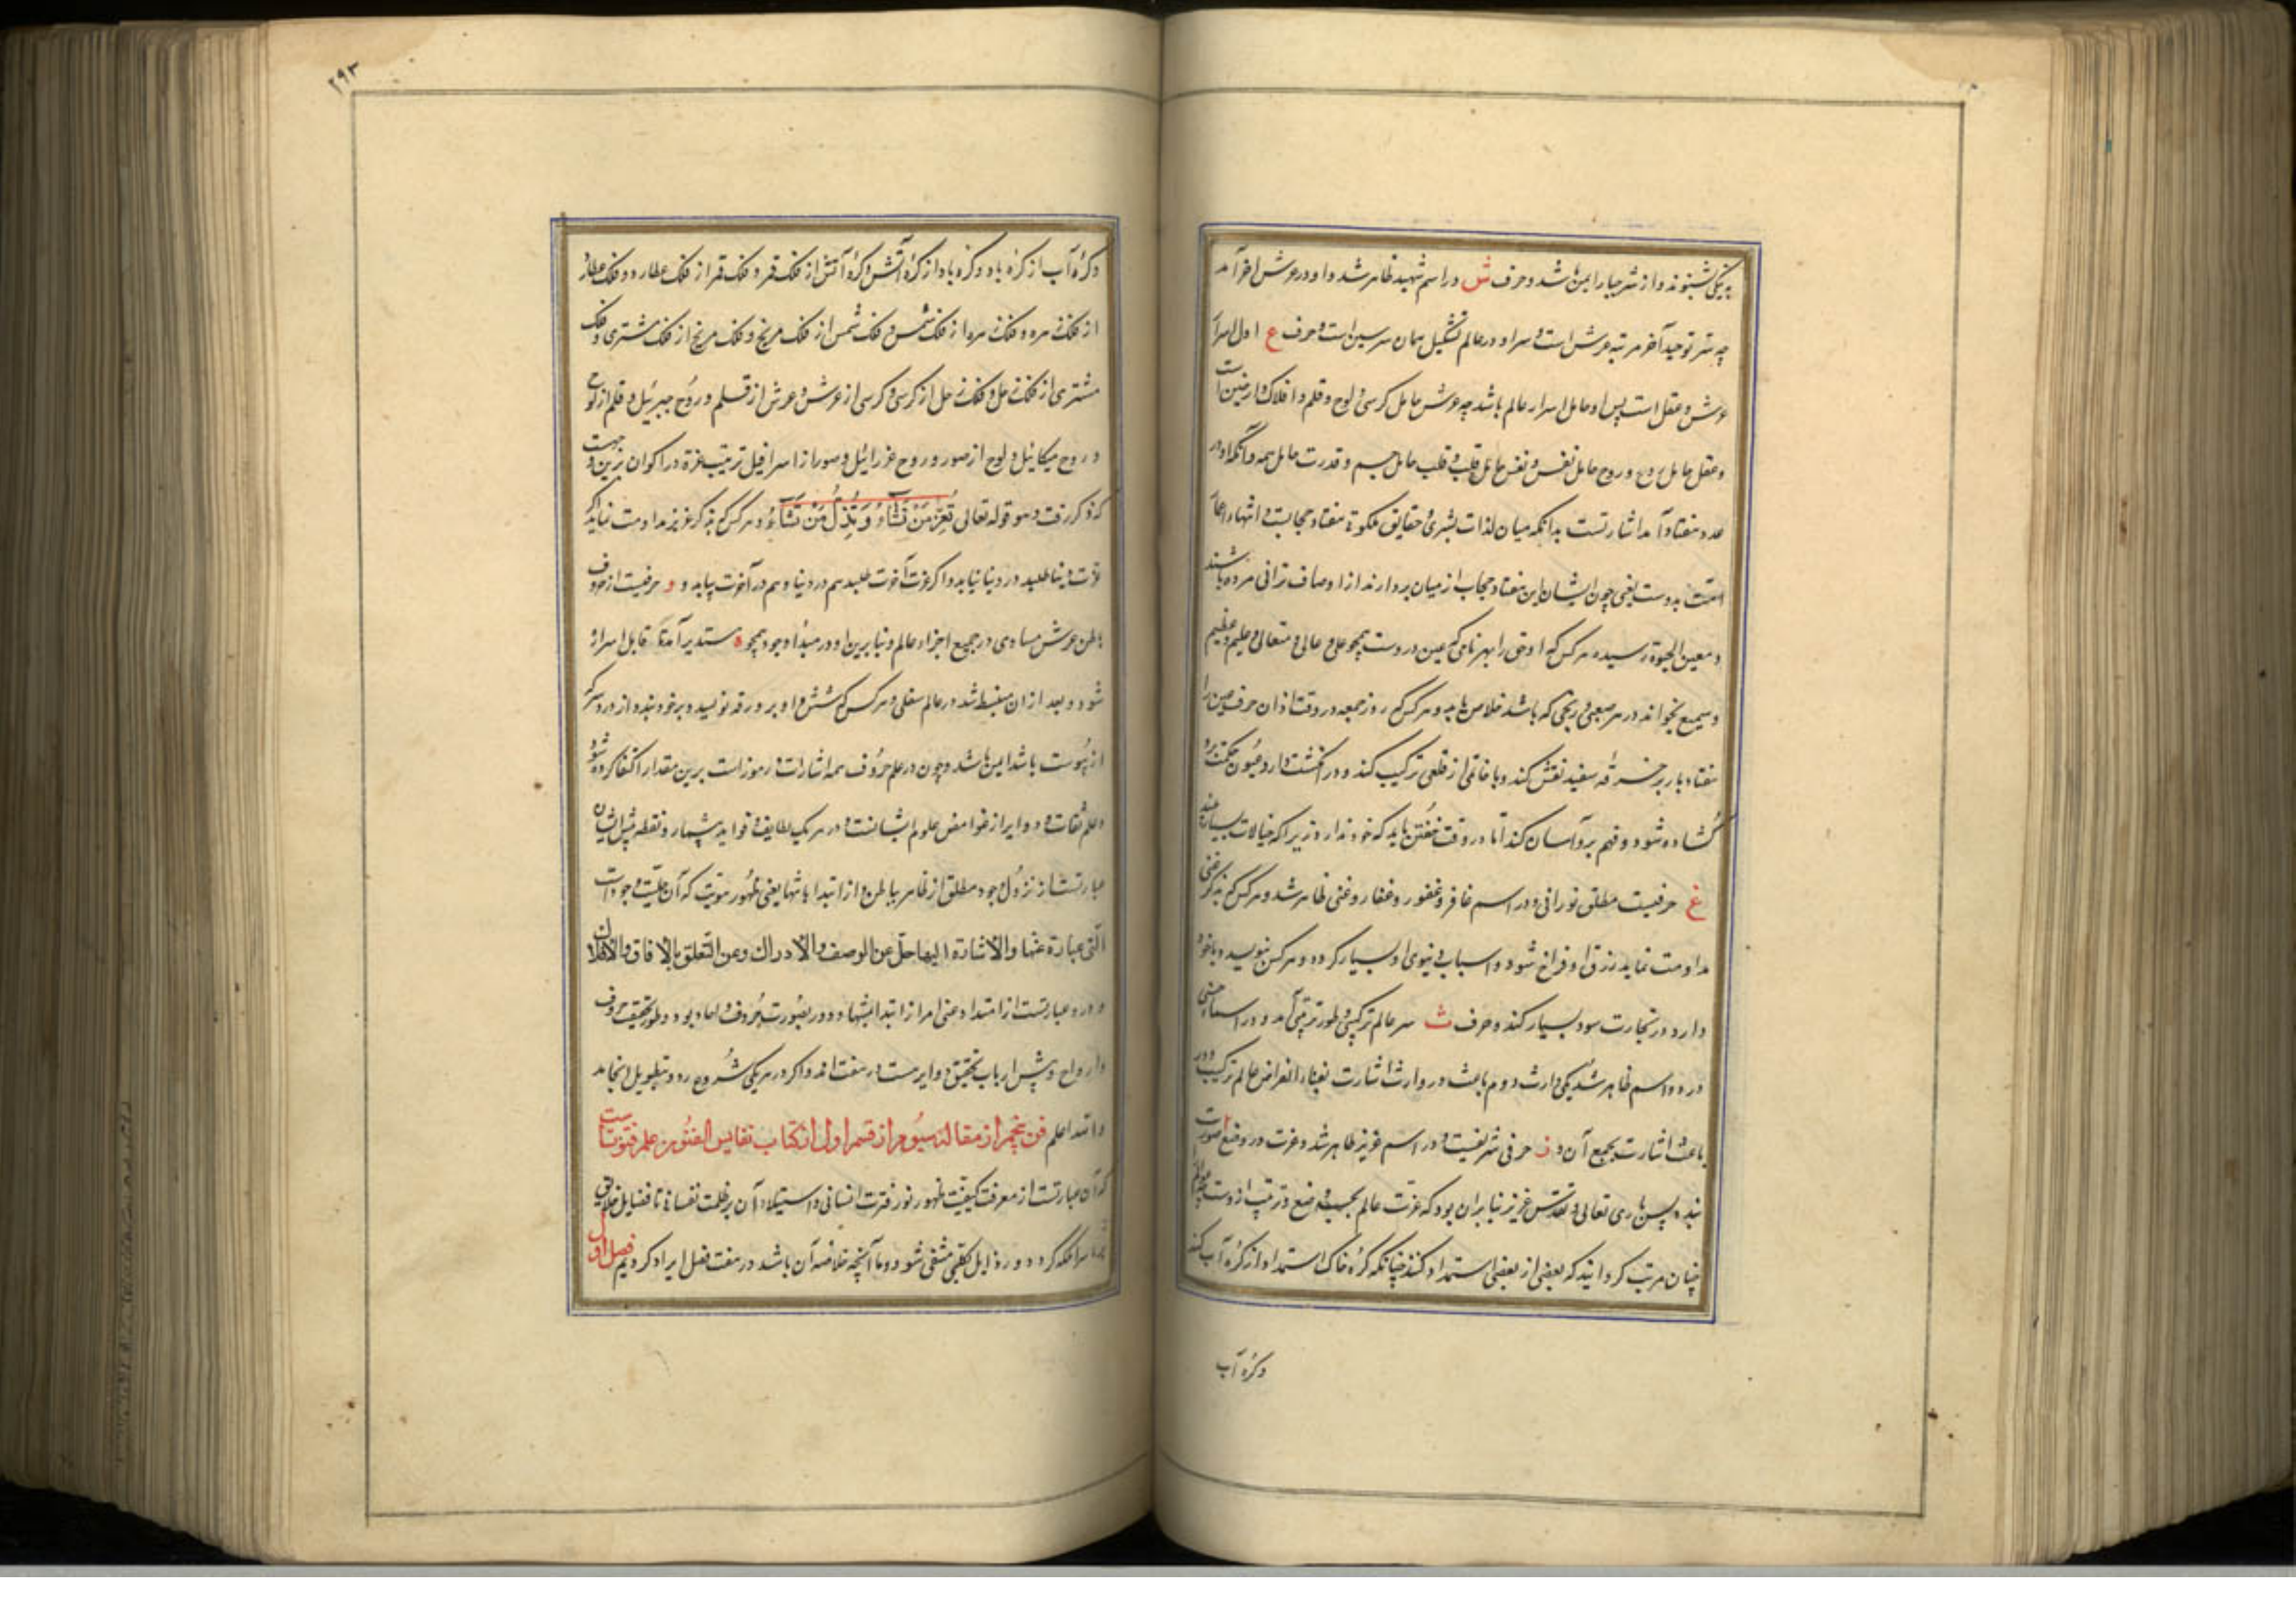 به نیکی شنوند و از شر جباران ایمن باشد و حرف ش در اسم شهید ظاهر شد و او در عرش آخر آمد
چه سر توحید آخر مرتبه عرش است و سر او در عالم تشکیل همان سر سین است و حرف ع اول اسرار
عرش و عقل است پس او حامل اسرار عالم باشد چه عرش حامل کرسی و لوح و قلم و افلاک و ارضین است
و عقل حامل روح و روح حامل نفس و نفس حامل قلب و قلب حامل جسم و قدرت حامل همه و آنکه او در
عدد هفتاد آمد اشارتست بدانکه میان لذات بشری و حقایق ملکوتی هفتاد حجابست و انتهاء
امت بدوست یعنی چون ایشان این هفتاد حجاب از میان بردارند از اوصاف ترابی مرده باشند
و معین الحیوة رسیده و هر کس که او حق را بهر نامی که عین دروست همچو علی و عالی و متعالی و علیم و عظیم
و سمیع بخواند در هر صعبی و رنجی که باشد خلاص یابد و هر کس که روز جمعه در وقت اذان حرف عین را
هفتاد بار بر خرقه سفید نقش کند و با خاتمی از قلعی ترکیب کند و در انگشت دارد عیون حکمت برو
گشاده شود و فهم برو آسان کند اما در وقت خفتن باید که خود ندارد زیرا که خیالات بسیار بیند
غ حرفیست مطلق نورانی و در اسم غافر و غفور و غفار و غنی ظاهر شد و هر کس که بذکر غنی
مداومت نماید رزق او فراخ شود و اسباب دنیوی او بسیار گردد و هر کس بنویسد و با خود
دارد در تجارت سود بسیار کند و حرف ث سر عالم ترکیبی و طور ترتیبی آمد و در اسماء حسنی
در دو اسم ظاهر شد یکی وارث دوم باعث و در وارث اشارت بفناء و انقراض عالم ترکیب و در
باعث اشارت بجمع آن و ز حرفی شریفست و در اسم عزیز ظاهر شد و عزت در وضع صورت
بنده پس باری تعالی و تقدس عزیز بنابران بود که عزت عالم بحسب وضع و ترتیب ازوست چه عوالم را
چنان مرتب گردانید که بعضی از بعضی استمداد کنند چنانکه کره خاک استمداد از کره آب کند
وکره آب
۲۹۳
و کره آب از کره باد و کره باد از کره آتش و کره آتش از فلک قمر و فلک قمر از فلک عطارد و فلک عطارد
از فلک زهره و فلک زهره از فلک شمس و فلک شمس از فلک مریخ و فلک مریخ از فلک مشتری و فلک
مشتری از فلک زحل و فلک زحل از کرسی و کرسی از عرش و عرش از قلم و روح جبرئیل و قلم از لوح
و روح میکائیل و لوح از صور و روح عزرائیل و صور از اسرافیل ترتیب عزة در اکوان بدین جهت
که ذکر رفت و هو قوله تعالی تُعِزُّ مَنْ تَشَاءُ وَ تُذِلُّ مَنْ تَشَاءُ و هر کس که بذکر عزیز مداومت نماید اگر
عزت دنیا طلبد در دنیا نیابد و اگر عزت آخرت طلبد هم در دنیا و هم در آخرت بیابد و و حرفیست از حروف
باطن عرش مساوی در جمیع اجزاء عالم و بنابرین او در مبدأ وجود همچو ه مستدیر آمد تا قابل اسرار
شود و بعد از ان منبسط شد در عالم سفلی و هر کس که شش واو بر ورقه نویسد و بر خود بندد از درد سر که
از یبوست باشد ایمن باشد و چون در علم حروف همه اشارات و رموز است برین مقدار اکتفا کرده شود
و علم نقاط و دوایر از غوامض علوم ایشانست و در هر یک لطایف و فواید بیشمار و نقطه پیش ایشان
عبارتست از نزول وجود مطلق از ظاهر بباطن و از ابتدا بانتها یعنی ظهور هویت که آن علیت وجودست
التی عبارة عنها والاشارة الیها جل عن الوصف والادراك وعن التعلق بالافاق والافلاك
و دوره عبارتست از امتداد معنی امر از ابتدا بانتها و دور بصورت حروف و اعداد بود و طور تحقیق حروف
و ارواح و پیش ارباب تحقیق دوایر هست در هفت اند و اگر در هر یکی شروع رود بتطویل انجامد
والله اعلم فن پنجم از مقالت سیوم از قسم اول از کتاب نفایس الفنون علم فتوتست
که آن عبارتست از معرفت کیفیت ظهور نور فطرت انسانی و استیلاء آن بر ظلمت نفسانی تا فضایل خلایق
ملکه گردد و رذایل بکلی منتفی شود و ما آنچه خلاصه آن باشد در هفت فصل ایراد کردیم فصل اول